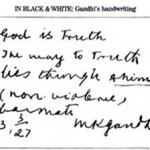 IN BLACK & WHITE: Gandhi's handwriting
God is Truth
The way to Truth
lies through ahimsa
(non violence)
Sabarmati
13 3/27 MKGandhi